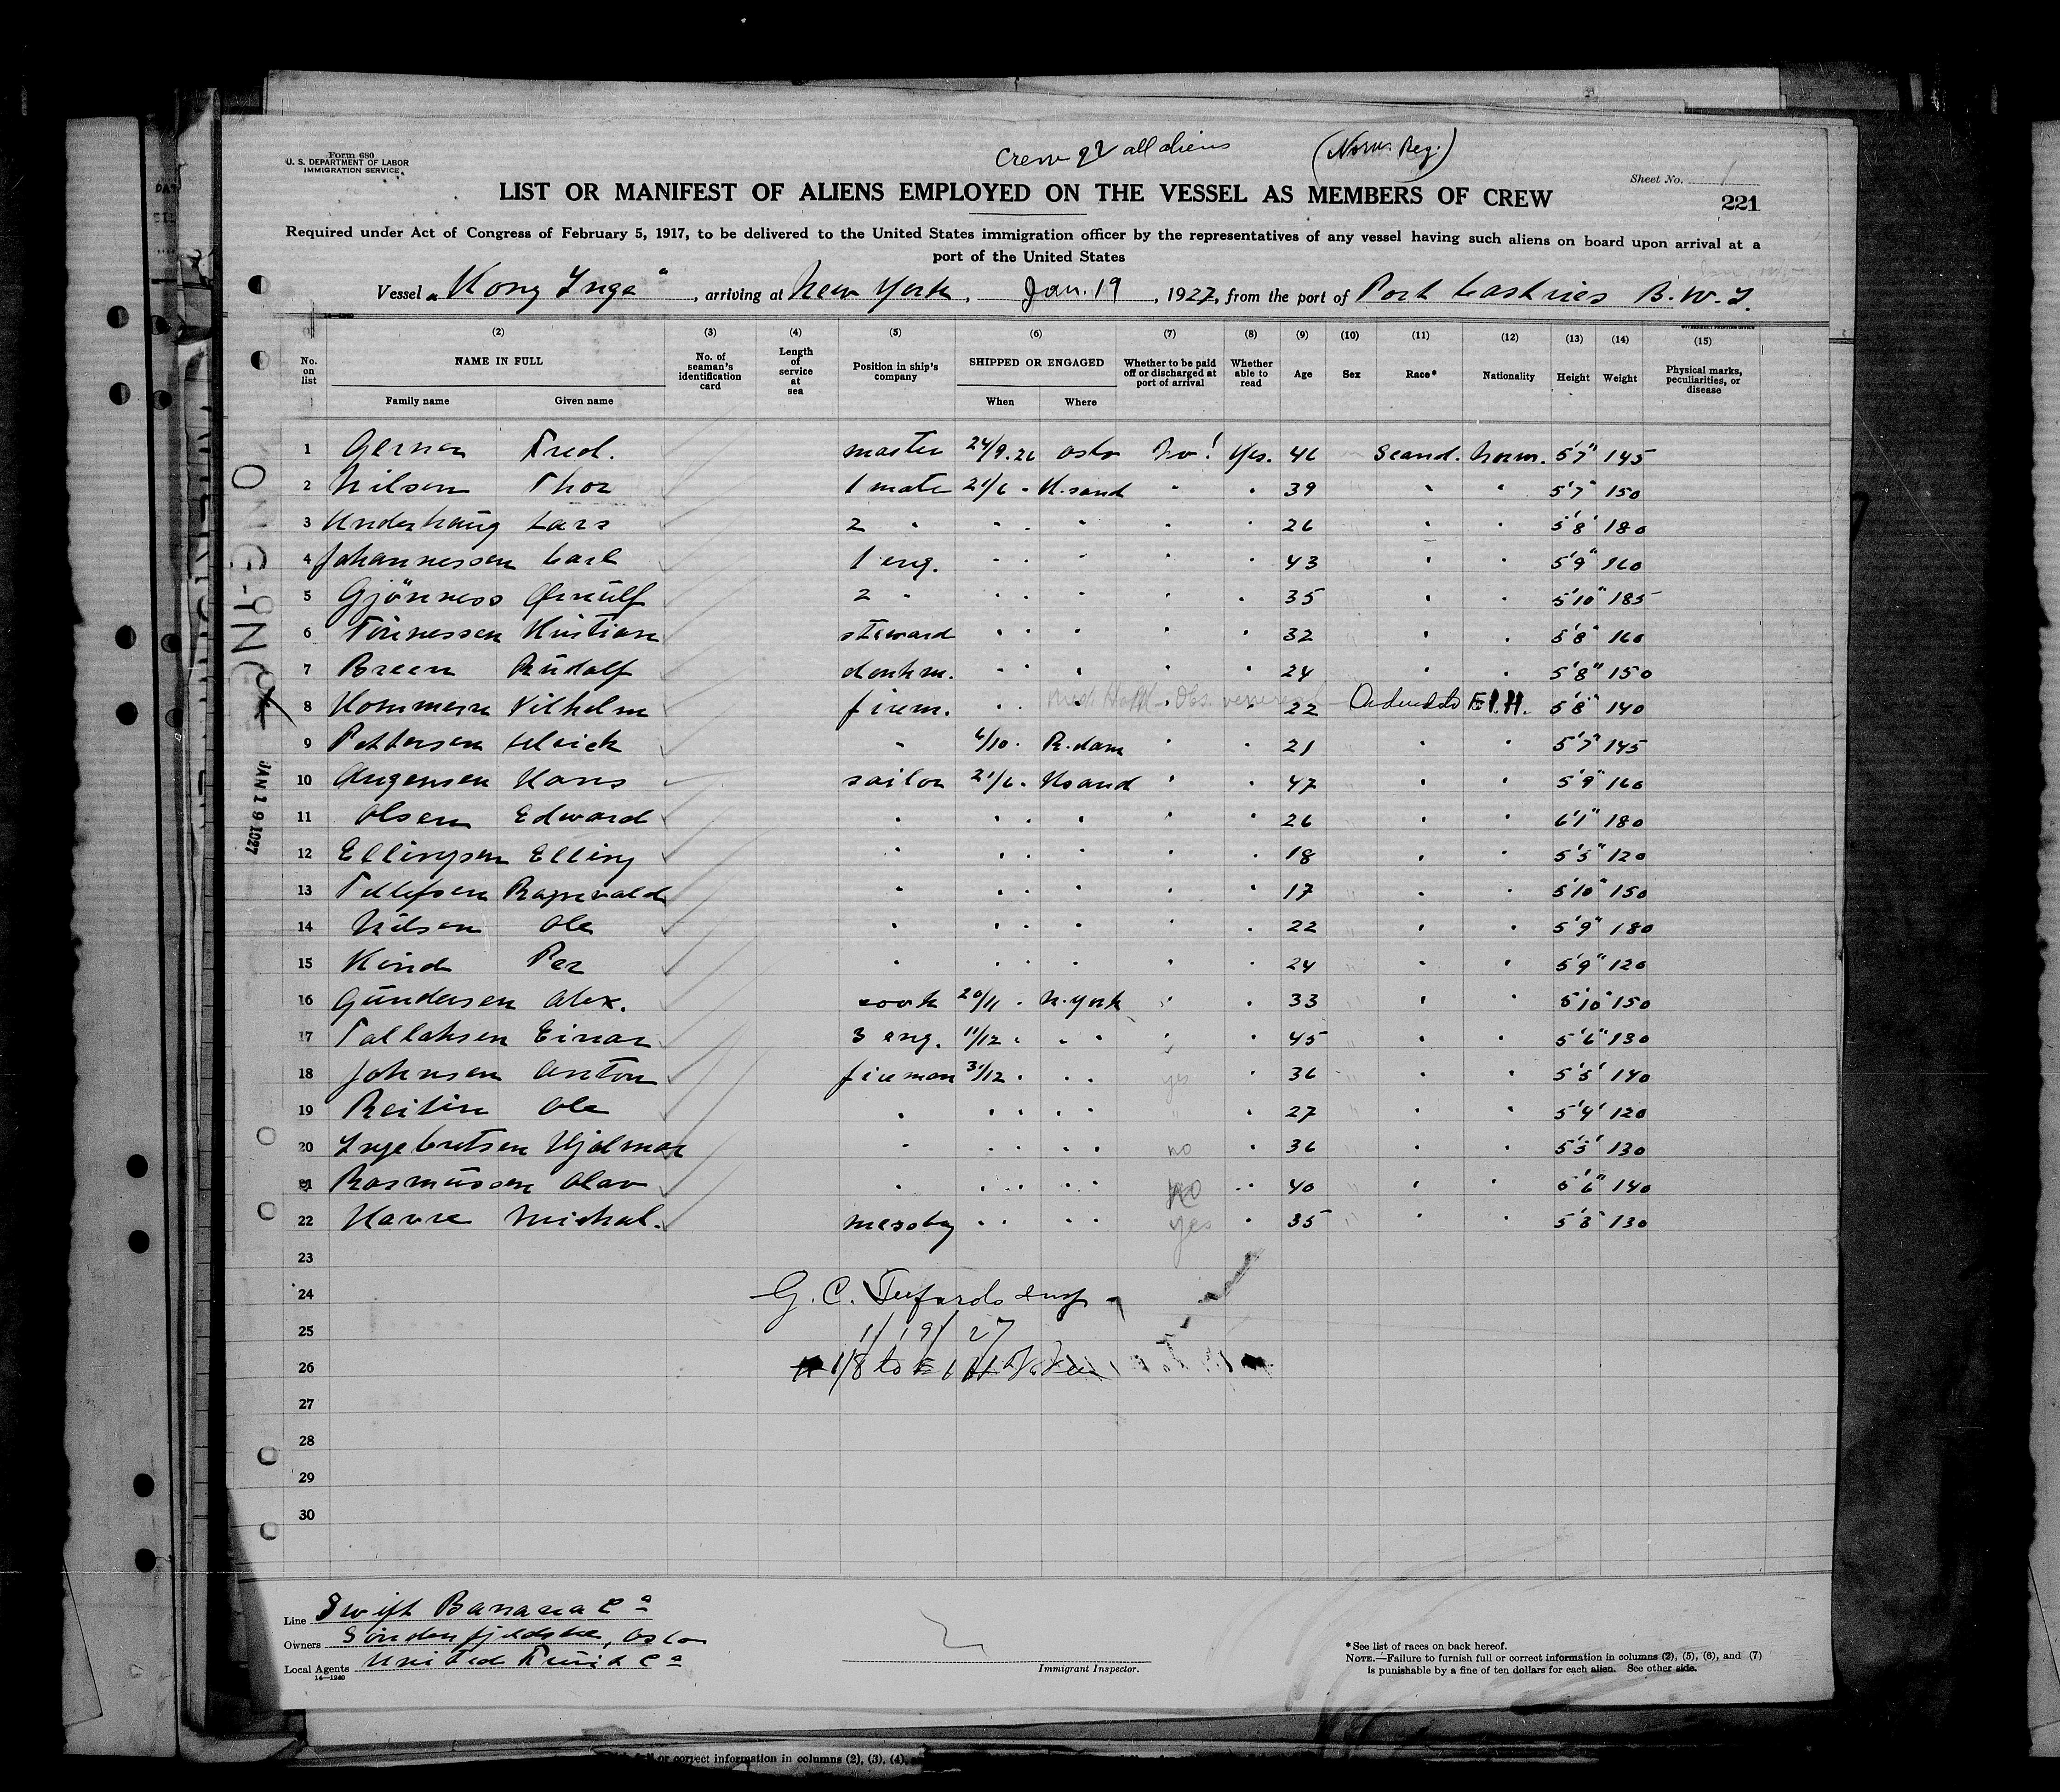 Form 680
U. S. DEPARTMENT OF LABOR
IMMIGRATION SERVICE
Crew 22 all aliens (Norw. Reg.)
Sheet No. 1
LIST OR MANIFEST OF ALIENS EMPLOYED ON THE VESSEL AS MEMBERS OF CREW
221
Required under Act of Congress of February 5, 1917, to be delivered to the United States immigration officer by the representatives of any vessel having such aliens on board upon arrival at a
port of the United States
Vessel "Kong Inge", arriving at New York, Jan. 19, 1927, from the port of Port Castries B.W.I.
(2) (3) (4) (5) (6) (7) (8) (9) (10) (11) (12) (13) (14) (15)
No. on list NAME IN FULL Family name Given name No. of seaman's identification card Length of service at sea Position in ship's company SHIPPED OR ENGAGED When Where Whether to be paid off or discharged at port of arrival Whether able to read Age Sex Race* Nationality Height Weight Physical marks, peculiarities, or disease
1 Gerner Fred. master 24/9.26 Oslo No! Yes. 46 Scand. Norw. 5'7" 145
2 Nilsen Thor 1 mate 21/6 " K.sand " " 39 " " 5'7" 150
3 Underhaug Lars 2 " " " " " " 26 " " 5'8" 180
4 Johannessen Carl 1 eng. " " " " " 43 " " 5'9" 160
5 Gjönness 2 " " " " " " 35 " " 5'10" 185
6 Tönnessen Kristian steward " " " " " 32 " " 5'8" 160
7 Breen Rudolf donkm. " " " " " 24 " " 5'8" 150
8 Vilhelm firem. " " " " " 22 Ordered to E.I.H. 5'8" 140
9 Pettersen Ulrick " 6/10 " R.dam " " 21 " " 5'7" 145
10 Hans sailor 21/6 " Ksand " " 47 " " 5'9" 160
11 Olsen Edward " " " " " " 26 " " 6'1" 180
12 Ellingsen Elling " " " " " " 18 " " 5'5" 120
13 Tellefsen Ragnvald " " " " " " 17 " " 5'10" 150
14 Nilsen Ole " " " " " 22 " " 5'9" 180
15 Kind Per " " " " " " 24 " " 5'9" 120
16 Gundersen Alex. cook 20/11 " N.york " " 33 " " 5'10" 150
17 Tallaksen Einar 3 eng. 11/12 " " " " " 45 " " 5'6" 130
18 Johnsen Anton fireman 31/12 " " " yes " 36 " " 5'5" 140
19 Ole " " " " " " " 27 " " 5'4" 120
20 Ingebretsen Hjalmar " " " " " no " 36 " " 5'5" 130
21 Rasmussen Olav " " " " " no " 40 " " 5'6" 140
22 Havre Michal. messboy " " " " yes " 35 " " 5'8" 130
23
24 G. C.
25 1/19/27
26
27
28
29
30
JAN 19 1927
Line Swift Banana Co
Owners Söndenfjeldske, Oslo
Local Agents United Fruit Co
14—1240
Immigrant Inspector.
*See list of races on back hereof.
NOTE.—Failure to furnish full or correct information in columns (2), (5), (6), and (7)
is punishable by a fine of ten dollars for each alien. See other side.
or correct information in columns (2), (3), (4),